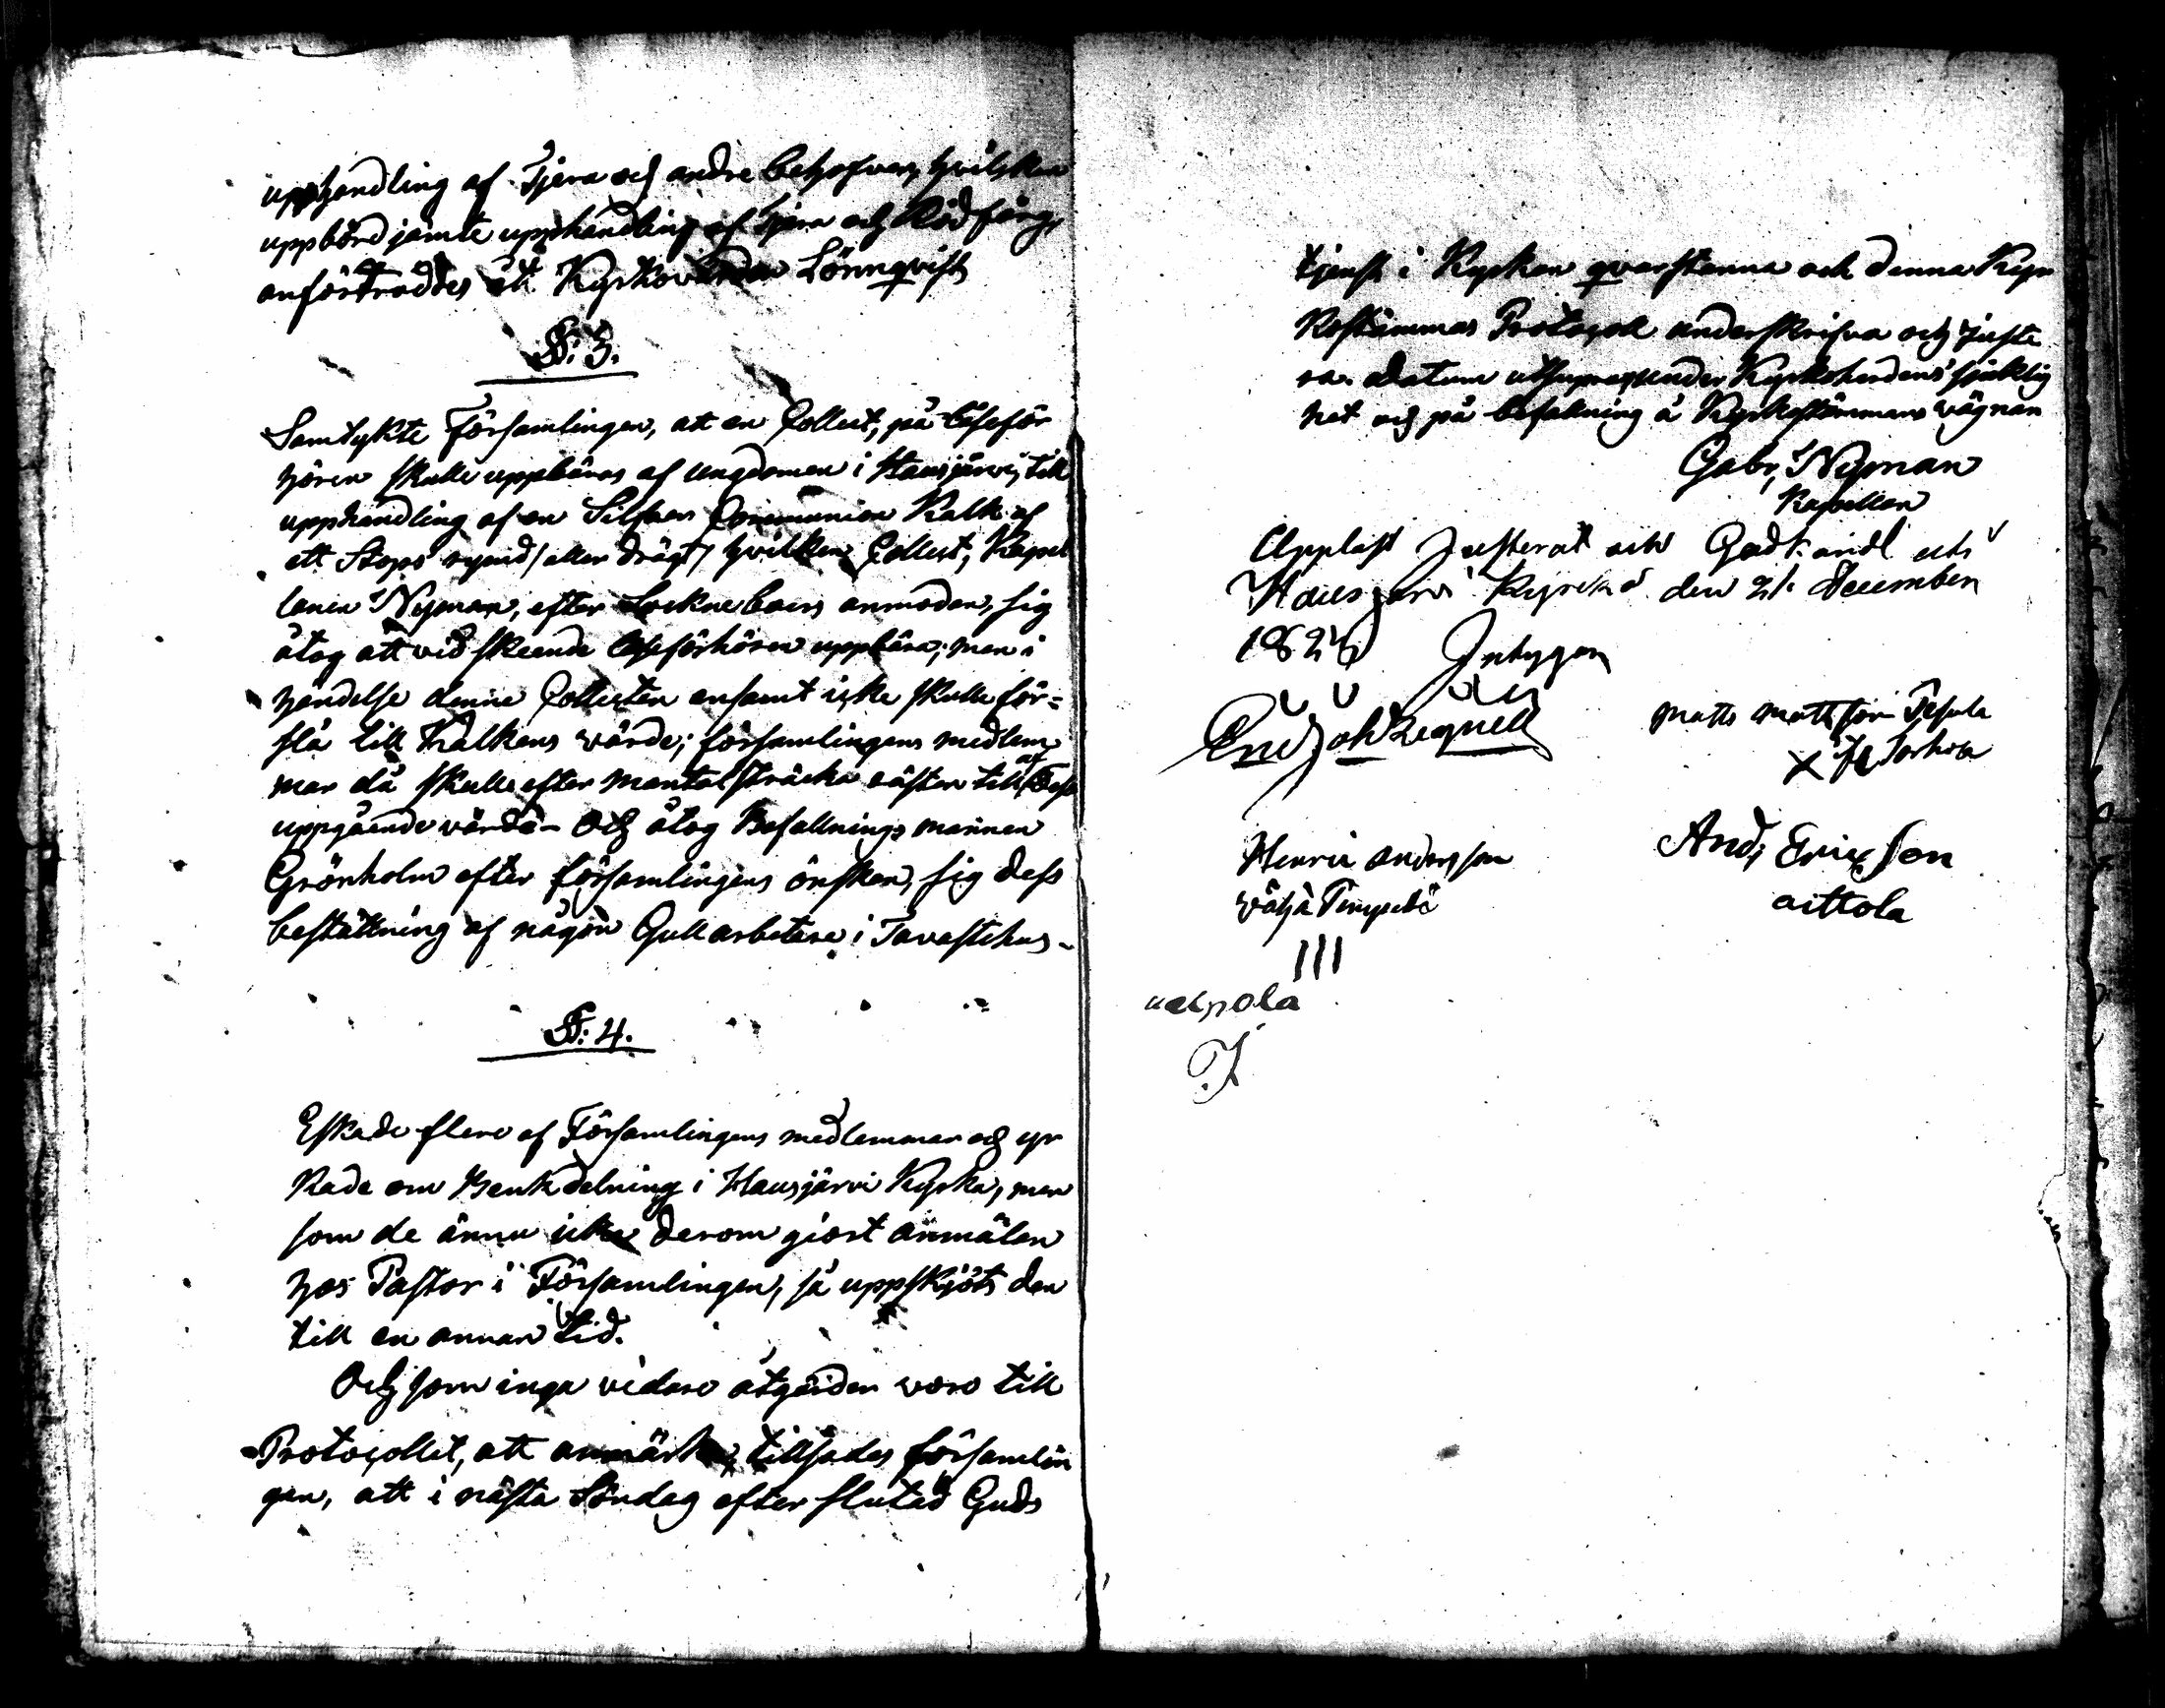 upphandling af Tjära och andre behofver, hvilken
uppbörd jämte upphandling af Tjära och Rödfärg,
anförtroddes åt Kyrkovärden Lönnqvist,
§: 3.
Samtykte Församlingen, att en Collect, på Läseför
hören skulle uppbäras af ungdomen i Hausjärvi, till
upphandling af en Silfver Communion Kalk af
ett Stops rymd / eller drägt / hvilken Collect, Kapel
lanen Nyman, efter Sockneboers anmodan, sig
åtog att vid skeende Läseförhören uppbära; men i
händelse denne Collecten ensamt icke skulle för=
slå till Kalkens värde; församlingens medlem
mar då skulle efter Mantal sträcka resten till af dess
uppgående värde - Och åtog Befallningsmannen
Grönholm efter församlingens önskan, sig dess
beställning af någon Gullarbetare i Tavastehus -
§: 4.
Eskade flere af Församlingens medlemmar och yr
kade om Bänkdelning i Hausjärvi Kyrka, men
som de ännu icke derom giort anmälan
hos Pastor i Församlingen, så uppskjöts den
till en annan tid.
Och som inga vidare åtgärder voro till
Protocollet, att anmärka, tillsades församlin
gen, att i nästa Söndag efter slutad Guds
tjenst i Kyrkan qvarstanna och denna Kyr
kostämmas Protocoll underskrifva och juste
ra. Datum utsupra, under Kyrkoherdens sjuklig
het och på befallning å Kyrkostämmans vägnar
Gabr, Nyman
Kapellan
Uppläst Justerat och Godkändt uti
Hausjärvi Kyrka den 21 December
182
Intygar
Matts Mattsson
Henric Andersson And; Ericsson
aittola
III